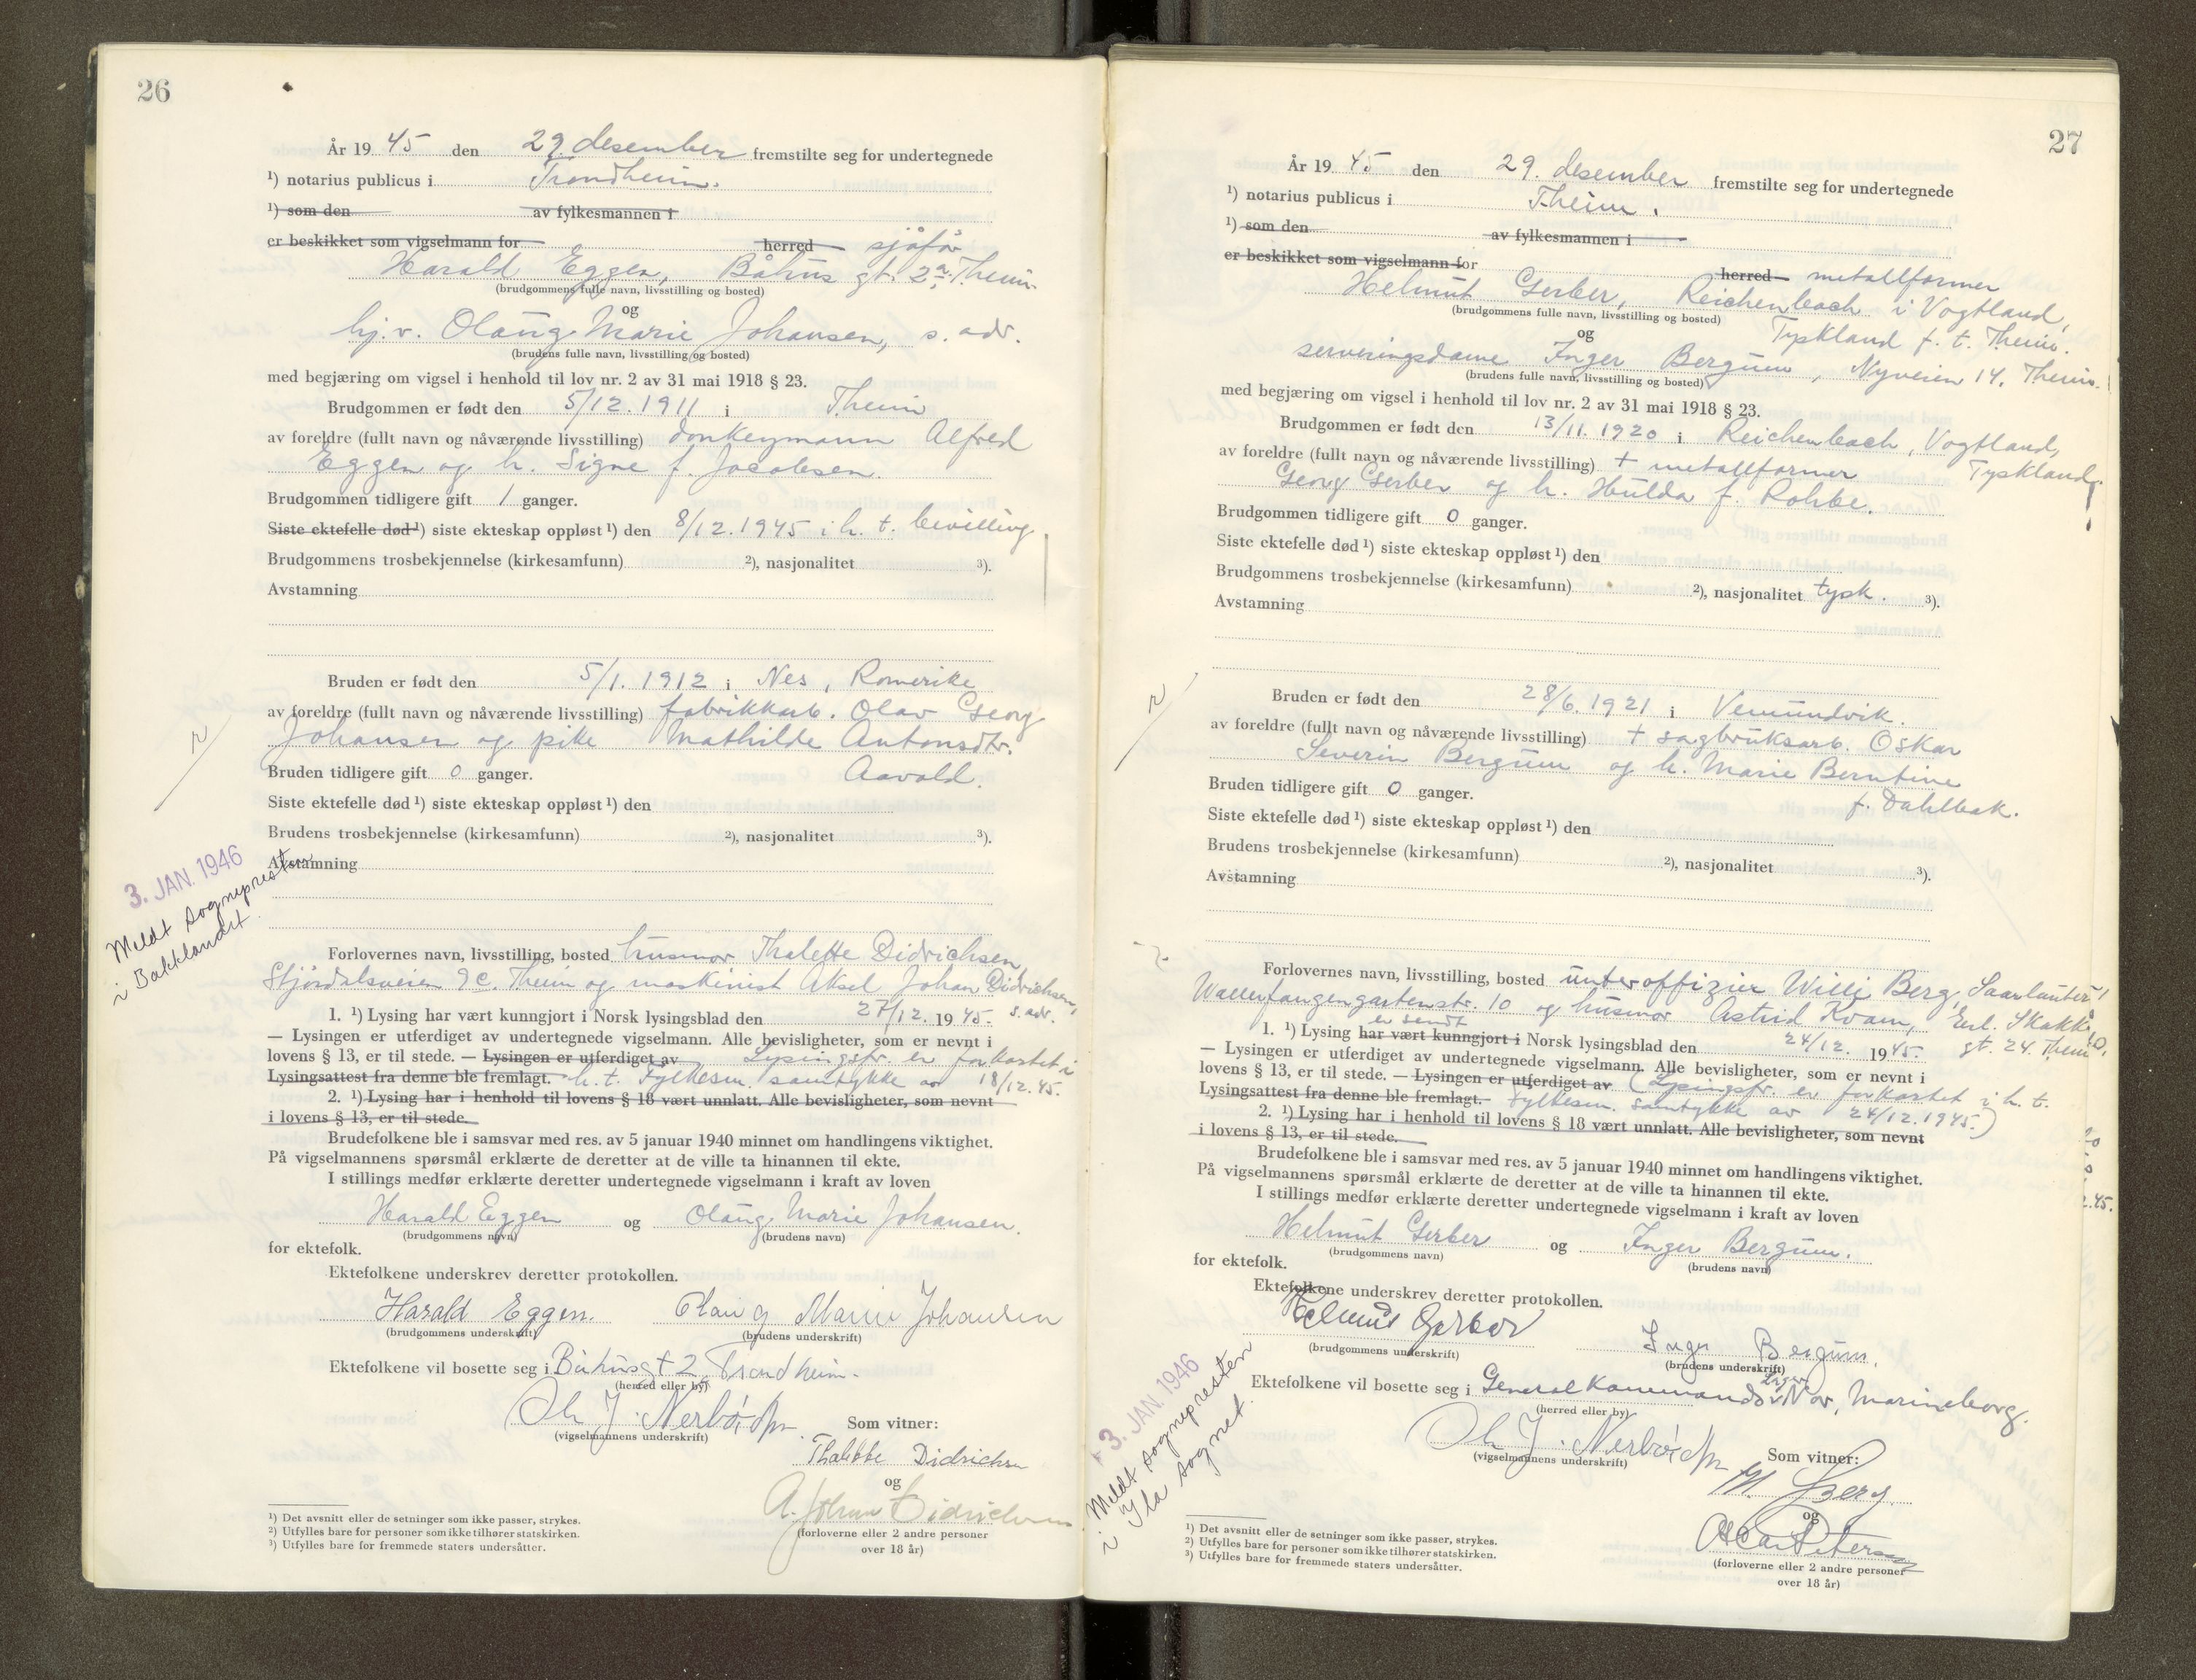 26
År 19 45 den 29. desember fremstilte seg for undertegnede
¹) notarius publicus i Trondheim.
¹) som den av fylkesmannen i
er beskikket som vigselmann for herred sjåfør
Harald Eggen, Båhus gt. 2a Theim
(brudgommens fulle navn, livsstilling og bosted)
og
hj.v. Olaug Marie Johansen, s. adr.
(brudens fulle navn, livsstilling og bosted)
med begjæring om vigsel i henhold til lov nr. 2 av 31 mai 1918 § 23.
Brudgommen er født den 5/12.1911 i Theim
av foreldre (fullt navn og nåværende livsstilling) donkeymann Alfred
Eggen og h. Signe f. Jacobsen.
Brudgommen tidligere gift 1 ganger.
Siste ektefelle død ¹) siste ekteskap oppløst ¹) den 8/12.1945 i h. t. bevilling
Brudgommens trosbekjennelse (kirkesamfunn) ²), nasjonalitet ³).
Avstamning
Bruden er født den 5/1.1912 i Nes, Romerike
av foreldre (fullt navn og nåværende livsstilling) fabrikkarb. Olav Georg
Johansen og pike Mathilde Antonsdtr.
Bruden tidligere gift 0 ganger. Aavald.
Siste ektefelle død ¹) siste ekteskap oppløst ¹) den
Brudens trosbekjennelse (kirkesamfunn) ²), nasjonalitet ³).
Avstamning
3. JAN. 1946
Meldt sognepresten
i Bakklandet.
Forlovernes navn, livsstilling, bosted husmor Thalette Didrichsen,
Stjørdalsveien 9c. Theim og maskinist Aksel Johan Didrichsen,
1. ¹) Lysing har vært kunngjort i Norsk lysingsblad den 27/12. 19 45. s. adr.
— Lysingen er utferdiget av undertegnede vigselmann. Alle bevisligheter, som er nevnt i
lovens § 13, er til stede. — Lysingen er utferdiget av Lysingsfr. er forkortet i
Lysingsattest fra denne ble fremlagt. h. t. Fylkesm. samtykke av 18/12.45.
2. ¹) Lysing har i henhold til lovens § 18 vært unnlatt. Alle bevisligheter, som nevnt
i lovens § 13, er til stede.
Brudefolkene ble i samsvar med res. av 5 januar 1940 minnet om handlingens viktighet.
På vigselmannens spørsmål erklærte de deretter at de ville ta hinannen til ekte.
I stillings medfør erklærte deretter undertegnede vigselmann i kraft av loven
Harald Eggen og Olaug Marie Johansen.
(brudgommens navn) (brudens navn)
for ektefolk.
Ektefolkene underskrev deretter protokollen.
Harald Eggen. Olaug Marie Johansen
(brudgommens underskrift) (brudens underskrift)
Ektefolkene vil bosette seg i Båhusgt 2, Trondheim.
(herred eller by)
(vigselmannens underskrift) Som vitner:
Thalette Didrichsen
og
A. Johan Didrichsen
(forloverne eller 2 andre personer
over 18 år)
¹) Det avsnitt eller de setninger som ikke passer, strykes.
²) Utfylles bare for personer som ikke tilhører statskirken.
³) Utfylles bare for fremmede staters undersåtter.
27
År 19 45 den 29. desember fremstilte seg for undertegnede
¹) notarius publicus i T.heim.
¹) som den av fylkesmannen i
er beskikket som vigselmann for herred metallformer
Helmut Gerber, Reichenbach i Vogtland,
(brudgommens fulle navn, livsstilling og bosted)
og Tyskland f. t. Theim.
serveringsdame Inger Bergum, Nyveien 14. Theim.
(brudens fulle navn, livsstilling og bosted)
med begjæring om vigsel i henhold til lov nr. 2 av 31 mai 1918 § 23.
Brudgommen er født den 13/11.1920 i Reichenbach, Vogtland,
av foreldre (fullt navn og nåværende livsstilling) + metallformer Tyskland.
Georg Gerber og h. Hulda f. Rohbe.
Brudgommen tidligere gift 0 ganger.
Siste ektefelle død ¹) siste ekteskap oppløst ¹) den
Brudgommens trosbekjennelse (kirkesamfunn) ²), nasjonalitet tysk. ³).
Avstamning
Bruden er født den 28/6.1921 i Vemundvik.
av foreldre (fullt navn og nåværende livsstilling) + sagbruksarb. Oskar
Severin Bergum og h. Marie Berntine
Bruden tidligere gift 0 ganger. f. Dahlbak.
Siste ektefelle død ¹) siste ekteskap oppløst ¹) den
Brudens trosbekjennelse (kirkesamfunn) ²), nasjonalitet ³).
Avstamning
Forlovernes navn, livsstilling, bosted unteroffizier Willi Berg, Saarlautern
Wallerfangengartenstr. 10 og husmor Astrid Kvam, Erl. Skakkes
er sendt
1. ¹) Lysing har vært kunngjort i Norsk lysingsblad den 24/12. 19 45. gt. 24. Theim
— Lysingen er utferdiget av undertegnede vigselmann. Alle bevisligheter, som er nevnt i
lovens § 13, er til stede. — Lysingen er utferdiget av (Lysingsfr. er forkortet i h. t.
Lysingsattest fra denne ble fremlagt. Fylkesm. samtykke av 24/12.1945.)
2. ¹) Lysing har i henhold til lovens § 18 vært unnlatt. Alle bevisligheter, som nevnt
i lovens § 13, er til stede.
Brudefolkene ble i samsvar med res. av 5 januar 1940 minnet om handlingens viktighet.
På vigselmannens spørsmål erklærte de deretter at de ville ta hinannen til ekte.
I stillings medfør erklærte deretter undertegnede vigselmann i kraft av loven
Helmut Gerber og Inger Bergum.
(brudgommens navn) (brudens navn)
for ektefolk.
Ektefolkene underskrev deretter protokollen.
Helmut Gerber Inger Bergum.
(brudgommens underskrift) (brudens underskrift)
Lager
Ektefolkene vil bosette seg i Generalkommandov Nor, Marineborg.
(herred eller by)
(vigselmannens underskrift) Som vitner:
W. Berg
og
(forloverne eller 2 andre personer
over 18 år)
3. JAN. 1946
Meldt sognepresten
i Ila sognet.
¹) Det avsnitt eller de setninger som ikke passer, strykes.
²) Utfylles bare for personer som ikke tilhører statskirken.
³) Utfylles bare for fremmede staters undersåtter.